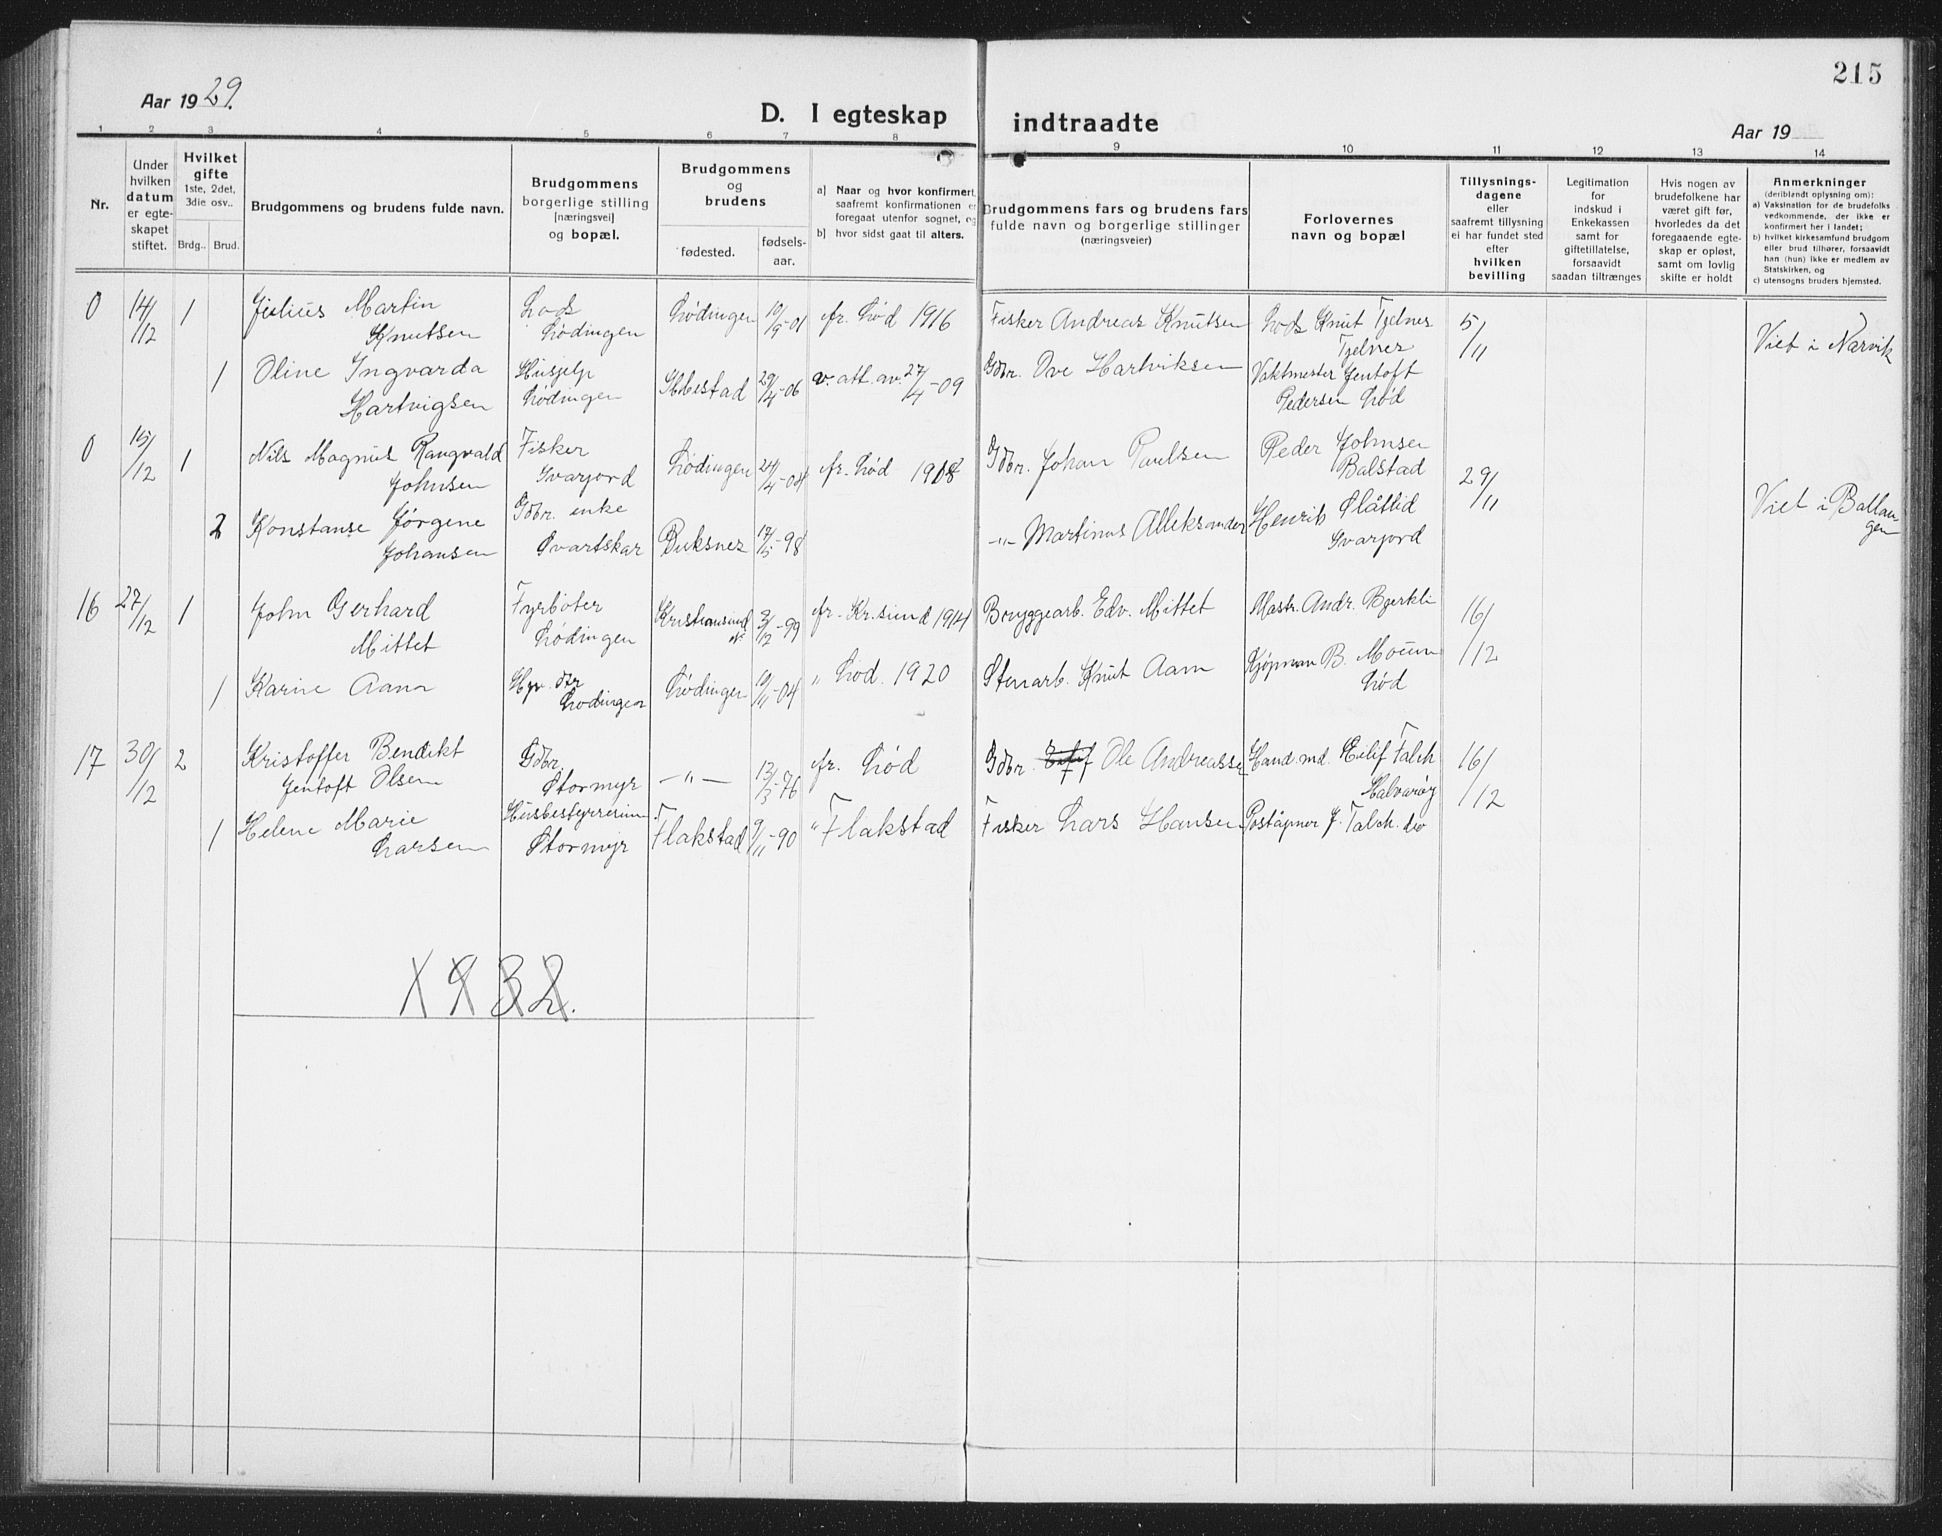 215
Aar 1929.
D. I egteskap
indtraadte
Aar 19
1 2 3 4 5 6 7 8
9 10 11 12 13 14
Nr.
Under
hvilken
datum
er egte-
skapet
stiftet.
Hvilket
gifte
1ste, 2det,
3die osv..
Brdg.. Brud.
Brudgommens og brudens fulde navn.
Brudgommens
borgerlige stilling
[næringsvei]
og bopæl.
Brudgommens
og
brudens
fødested.
fødsels-
aar.
a] Naar og hvor konfirmert,
saafremt konfirmationen er
foregaat utenfor sognet, og
b] hvor sidst gaat til alters.
Brudgommens fars og brudens fars
fulde navn og borgerlige stillinger
(næringsveier)
Forlovernes
navn og bopæl
Tillysnings-
dagene
eller
saafremt tillysning
ei har fundet sted
efter
hvilken
bevilling
Legitimation
for
indskud i
Enkekassen
samt for
giftetillatelse,
forsaavidt
saadan tiltrænges
Hvis nogen av
brudefolkene har
været gift før,
hvorledes da det
foregaaende egte-
skap er opløst,
samt om lovlig
skifte er holdt
Anmerkninger
(deriblandt oplysning om):
a) Vaksination for de brudefolks
vedkommende, der ikke er
konfirmert her i landet;
b) hvilket kirkesamfund brudgom
eller brud tilhører, forsaavidt
han (hun) ikke er medlem av
Statskirken, og
c) utensogns bruders hjemsted.
0 14/12 1 Julius Martin
Knutsen
Lods
Lødingen
Lødingen 10/9-01 fr. Lød 1916
Fisker Andreas Knutsen
Lods Knut Tjelnes
Tjelnes
5/11
Viet i Narvik
1 Oline Ingvarda
Hartvigsen
Husjelp
Lødingen
29/4-06 v. att. av. 27/4-09
Gdbr. Ove Hartviksen
Vaktmester Jentoft
Pedersen Lød
0 15/12 1 Nils Magnus Rangvald
Johnsen
Fisker
Svarjord
Lødingen 24/4-04 fr. Lød 1918
Gdbr. Johan Paulsen
Peder Johnsen
Balstad
29/11
Viet i Ballan-
gen
2 Konstanse Jørgene
Johansen
Gdbr. enke
Svartskar
Buksnes 17/5-98
-"- Martinus Alleksander
Henrik Slåttlid
Svarjord
16 27/12 1 John Gerhard
Mittet
Fyrbøter
Lødingen
Kristiansund
N. 3/12-99 fr. Kr.sund 1914
Bryggearb. Edv. Mittet
Mastr. Andr. Bjerkli
16/12
1 Karine Aam
Hgv. dtr
Lødingen
Lødingen 10/11-04 " Lød. 1920
Stenarb. Knut Aam
Kjøpman B. Moum
Lød
17 30/12 2 Kristoffer Bendikt
Jentoft Olsen
Gdbr.
Stormyr
-"- 13/5-76 fr. Lød
Gdbr. Ole Andreassen
Hand.md. Eilif Falch
Halvarøy
16/12
1 Helene Marie
Larsen
Husbestyrerinne
Stormyr
Flakstad 9/11-90 " Flakstad
Fisker Lars Hansen
Poståpner J. Falch. do
1932.